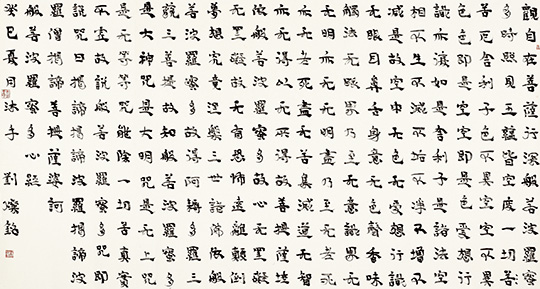 觀自在菩薩行深般若波羅蜜
多時照見五蘊皆空度一切
苦厄舍利子色不異空空不異
色色即是空空即是色受想行
識亦復如是舍利子是諸法空
相不生不滅不垢不淨不增不
減是故空中无色无受想行識
无眼耳鼻舌身意无色聲香味
觸法无眼界乃至无意識界无
无明亦无无明盡乃至无老死
亦无老死盡无苦集滅道无智
亦无得以无所得故菩提薩埵
依般若波羅蜜多故心无罣礙
无罣礙故无有恐怖遠離顛倒
夢想究竟涅槃三世諸佛依般
若波羅蜜多故得阿耨多羅三
藐三菩提故知般若波羅蜜多
是大神咒是大明咒是无上咒
是无等等咒能除一切苦真實
不虛故說般若波羅蜜多咒即
說咒曰揭諦揭諦波羅揭諦波
羅僧揭諦菩提薩婆訶
般若波羅蜜多心經
癸巳夏月 劉